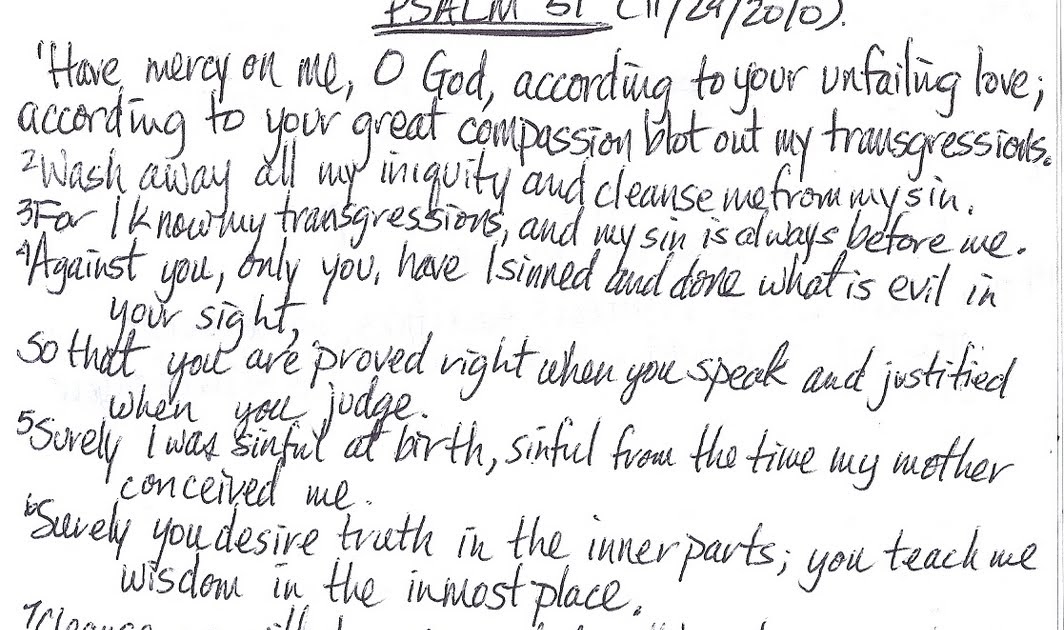 PSALM 51 (11/29/2010).
¹Have mercy on me, O God, according to your unfailing love;
according to your great compassion blot out my transgressions.
²Wash away all my iniquity and cleanse me from my sin.
³For I know my transgressions, and my sin is always before me.
⁴Against you, only you, have I sinned and done what is evil in
your sight,
So that you are proved right when you speak and justified
when you judge.
⁵Surely I was sinful at birth, sinful from the time my mother
conceived me.
⁶Surely you desire truth in the inner parts; you teach me
wisdom in the inmost place.
⁷Cleanse